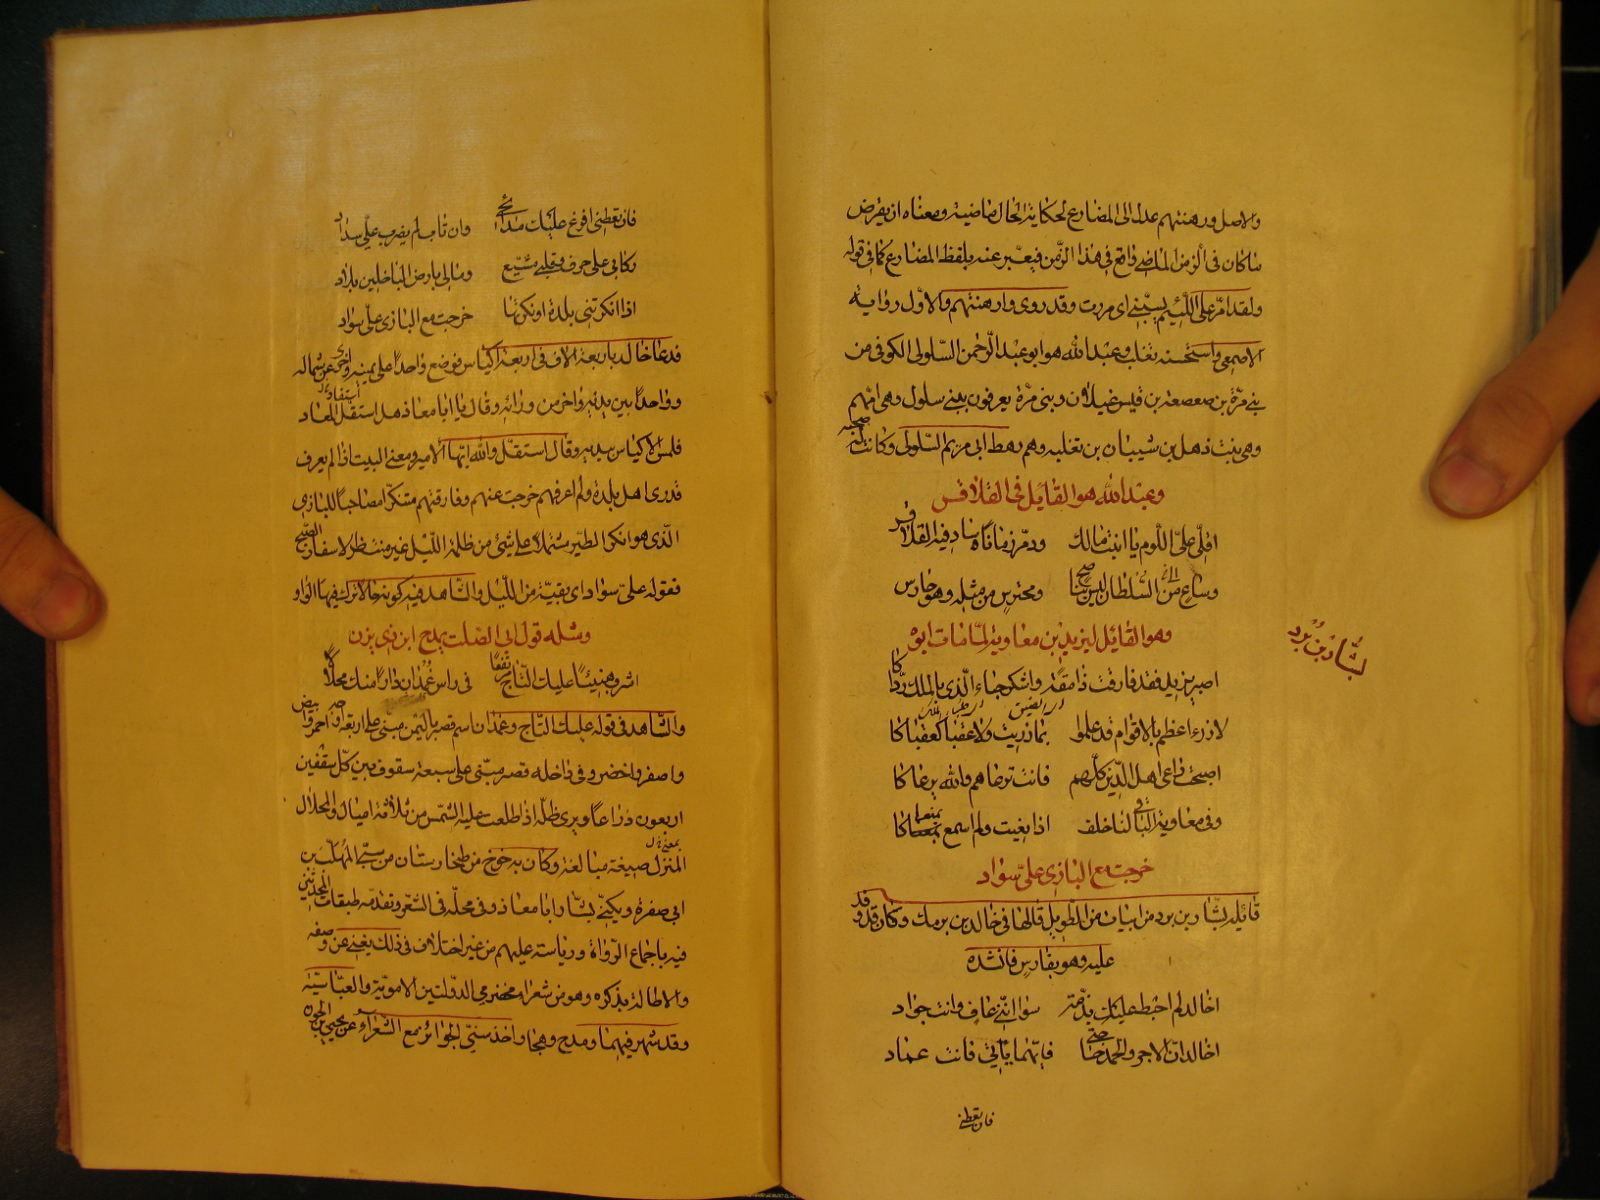 والاصل ورهنتهم عدل الى المضارع لحكاية الحال ماضية ومعناه ان يفرض
ما كان فى الزمن الماضى واقع فى هذا الزمن فيعبّر عنه بلفظ المضارع كما فى قوله
ولقد امرّ على اللّئيم يسبّنى اى مررت وقد روى وارهنتهم والاوّل رواية
الاصمعى واستحسنه ثعلب وعبد الله هو ابو عبد الرّحمن السّلولى الكوفى من
بنى مرّة بن صعصعة بن قيس غيلان وبنى مرّة يعرفون ببنى سلول وهى امّهم
وهى بنت ذهل بن شيبان بن ثعلبه وهم رهط ابى مريم السّلولى وكانت له صحبه
وعبد الله هو القايل فى الفلافس
اقلّى علىّ اللّوم يا ابنت مالك ودم زمانا ساد فيه الفلافس
وساع من السّلطان ليس بناصح ومحترس من مثله وهو حارس
وهو القايل ليزيد بن معاوية لمّا مات ابوه
اصبر يزيد فقد فارقت ذا مقة واشكر حباء الّذى بالملك ردّاكا
لا رزء اعظم بالاقوام قد علموا بما رزيت ولا عقبا كعقباكا
اصبحت راعى اهل الدّين كلّهم فانت ترعاهم والله يرعاكا
وفى معاوية الباقى لنا خلف اذا بغيت ولم اسمع بمنعاكا
لبشّار بن بُرد
خرجت مع البازى علىّ سواد
قايله بشّار بن برد من ابيات من الطّويل قالها فى خالد بن برمك وكان قد وفد
عليه وهو بفارس فانشده
اخالد لم احبط عليك بذمّة سوا انّنى عاف وانت جواد
اخالد انّ الاجر والحمد حاجتى فايّهما ياتى فانت عماد
فان تعطنى
فان تعطنى افرغ عليك مدايحى وان تاب لم يضرب علىّ سداد
ركابى على حرف وقلبى مشيّع ومالى بارض الباخلين بلاد
اذا انكرتنى بلدة او نكرتها خرجت مع البازى علىّ سواد
فدعا خالد باربعة الاف فى اربعة اكياس فوضع واحدا على يمينه واخرى عن شماله
وواحدا بين يديه واخر من ورائه وقال يا ابا معاذ هل استقل العماد
فلمس الاكياس بيديه وقال استقلّ والله ايّها الامير ومعنى البيت اذا لم يعرف
قدرى اهل بلدة ولم اعرفهم خرجت عنهم وفارقتهم متنكرا مصاحبا للبازى
الّذى هو انكر الطّير مشتملا على شئ من ظلمة اللّيل غير منتظر لاسفار الصّبح
فقوله علىّ سواد اى بقيّة من اللّيل والشّاهد فيه كونه حالا ترك فيها الواو
ومثله قول ابى الصّلت يمدح ابن ذى يزن
اشرب هنيئا عليك التّاج مرتفقا فى راس غُمدان دارا منك محلالا
والشّاهد فى قوله عليك التّاج وغمدان اسم قصر باليمن مبنى على اربعة اوجه احمر وابيض
واصفر واخضر وفى داخله قصر مبنّى على سبعة سقوف بين كلّ سقفين
اربعون ذراعا ويرى ظلّه اذا طلعت عليه الشّمس من ثلاثة اميال والمحلال
المنزل صيغة مبالغة وكان برجوخ من طخارستان من سبى المهلّب بن
ابى صفرة ويكنّى بشّار ابا معاذ وفى محلّه فى الشّعر وتقدّمه طبقات المحدثين
فيه باجماع الرّواة ورياسته عليهم من غير اختلاف فى ذلك يغنى عن وصفه
والاطالة بذكره وهو من شعراء مخضرمى الدّولتين الامويّة والعبّاسيّة
وقد شهر فيهما ومدح وهجا واخذ سنّى الجوائز مع الشّعرآء عن يحيى بن الجون